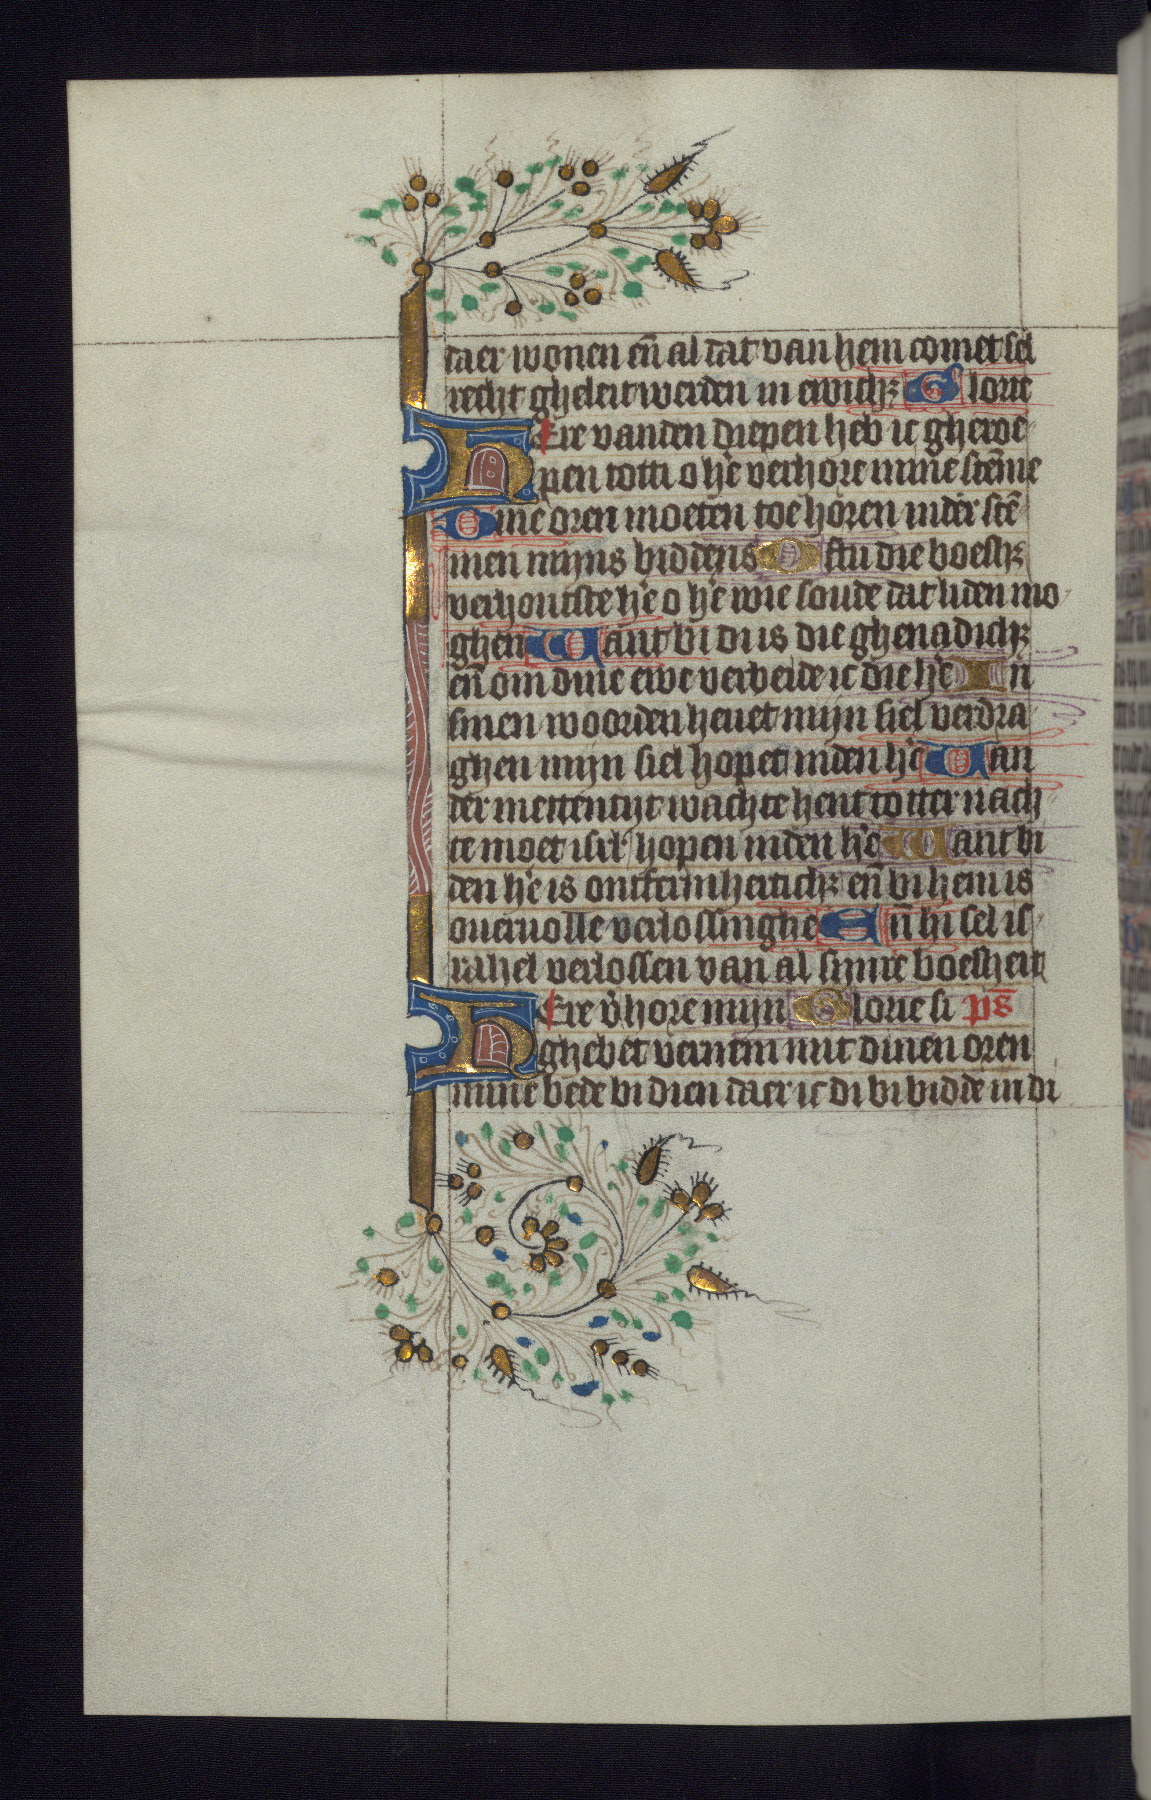 daer wonen en̄ al dat van hem comet sel
recht gheleit werden in ewich⁊ Glorie
HEre vanden diepen heb ic gheroe
pen totti o he' verhore mine stēme
Dine oren moeten toe horen inder stē
men mijns biddens Ostu die boesh⁊
verhoutste he' o he' wie soude dat liden mo
ghen Want bi di is die ghenadich⁊
en̄ om dine ewe verbeide ic die he' In
sinen woorden heuet mijn siel verdra
ghen mijn siel hopet inden he' Van
der mettentijt wachte hent totter nach
te moet isrl' hopen inden he' Want bi
den he' is ontfermhertich⁊ en̄ bi hem is
oueruolle verlossinghe En̄ hi sel is
rahel verlossen van al sijnre boesheit
HEre v'hore mijn Glorie si ps̄
ghebet vernem mit dinen oren
mine bede bi dien daer ic di bi bidde in di